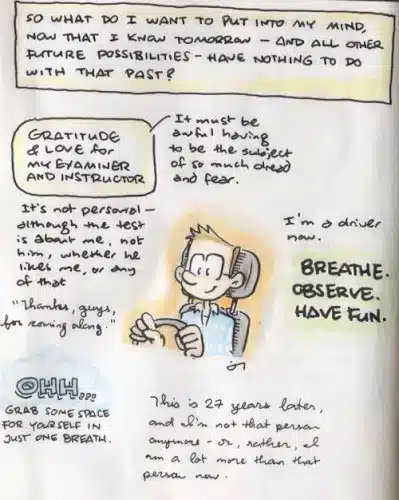 SO WHAT DO I WANT TO PUT INTO MY MIND,
NOW THAT I KNOW TOMORROW – AND ALL OTHER
FUTURE POSSIBILITIES – HAVE NOTHING TO DO
WITH THAT PAST?
GRATITUDE
& LOVE for
MY EXAMINER
AND INSTRUCTOR
It must be
awful having
to be the subject
of so much dread
and fear.
It's not personal –
although the test
is about me, not
him, whether he
likes me, or any
of that
"Thanks, guys,
for coming along."
I'm a driver
now.
BREATHE.
OBSERVE.
HAVE FUN.
OHH...
GRAB SOME SPACE
FOR YOURSELF IN
JUST ONE BREATH.
This is 27 years later,
and I'm not that person
anymore – or, rather, I
am a lot more than that
person now.